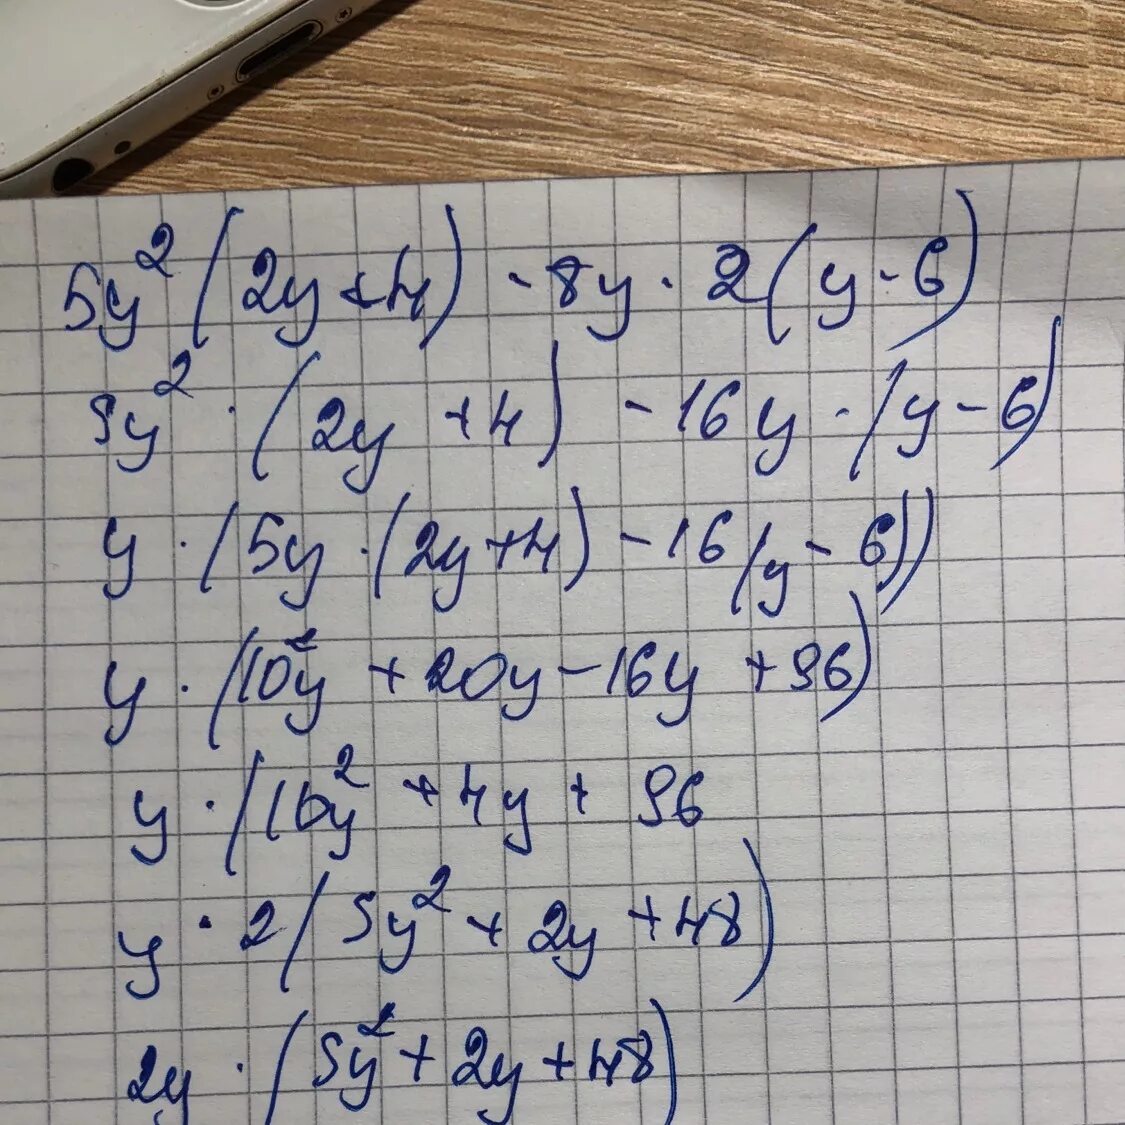 5y²(2y+4) - 8y · 2(y-6)
5y² · (2y+4) - 16y · (y-6)
y · (5y · (2y+4) - 16(y-6))
y · (10y² + 20y - 16y + 96)
y · (10y² + 4y + 96
y · 2(5y² + 2y + 48)
2y · (5y² + 2y + 48)